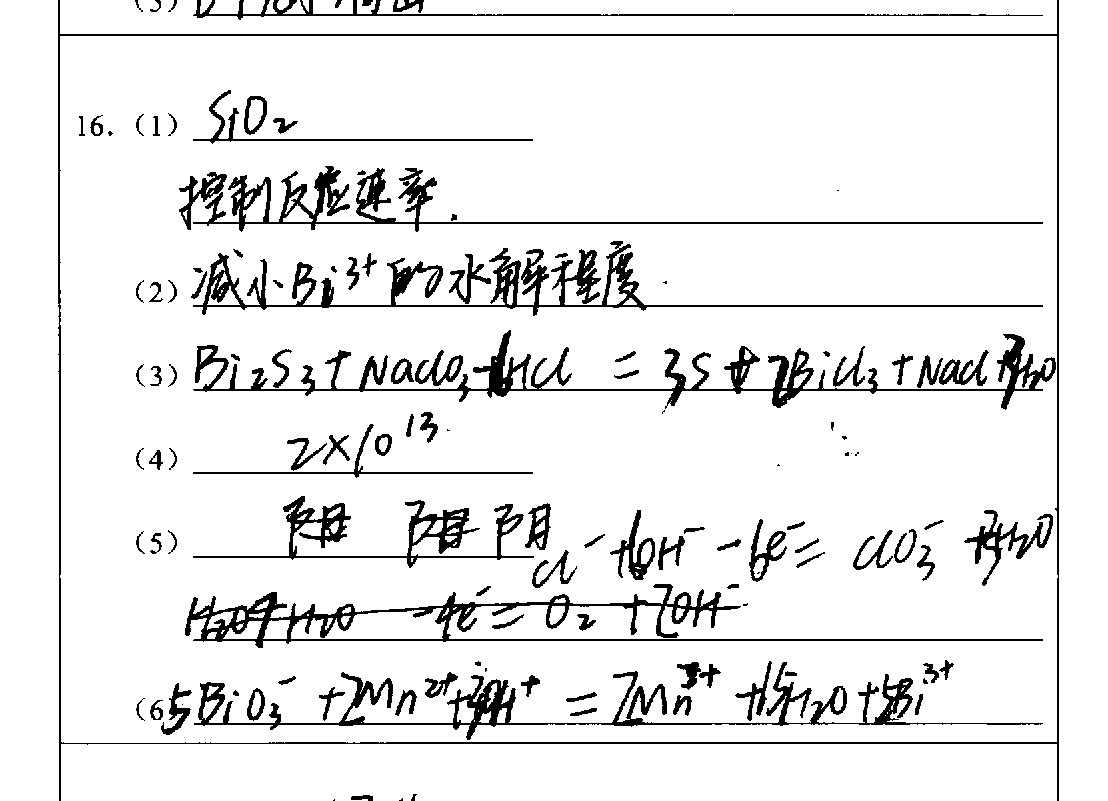 (3)
16. (1) SiO₂
控制反应速率.
(2) 减小Bi³⁺的水解程度
(3) Bi₂S₃+NaClO₃+6HCl = 3S+2BiCl₃+NaCl+3H₂O
(4) 2×10¹³
(5) 阳 阴
Cl⁻+6OH⁻-6e⁻=ClO₃⁻+3H₂O
-4e⁻=O₂+2OH⁻
(6) 5BiO₃⁻+2Mn²⁺+ H⁺=2Mn +15H₂O+5Bi³⁺